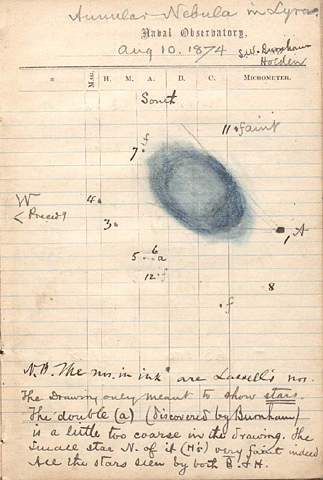 Annular Nebula in Lyra.
Naval Observatory,
Aug 10. 1874
S.W. Burnham
Holden
MAG. H. M. A. B. C. MICROMETER.
South
11 faint
7
W
4
Preced g
3
1 A
5 6 a
12 f
8
f
N.B. The nos. in ink are Lassell's nos.
The Drawing only meant to show stars.
The double (a) (discovered by Burnham)
is a little too coarse in the drawing. The
small star N. of it (H's) very faint indeed
All the stars seen by both B. & H.